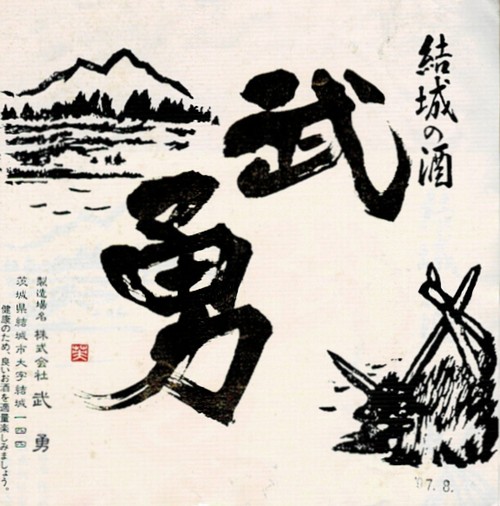 結城の酒
武勇
製造場名 株式会社 武勇
茨城県結城市大字結城一四四
健康のため、良いお酒を適量楽しみましょう。
'97.8.